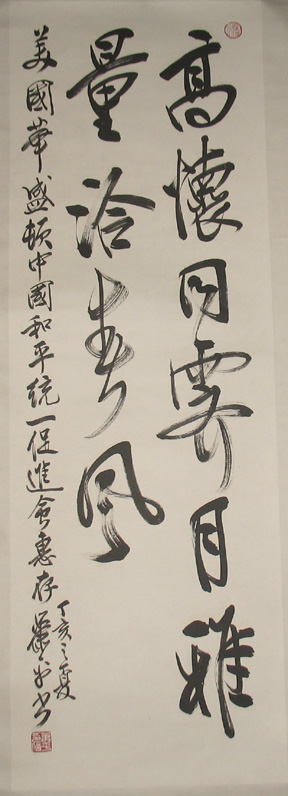 高懷同霽月雅
量洽春風
美國華盛頓中國和平統一促進會惠存
丁亥之夏